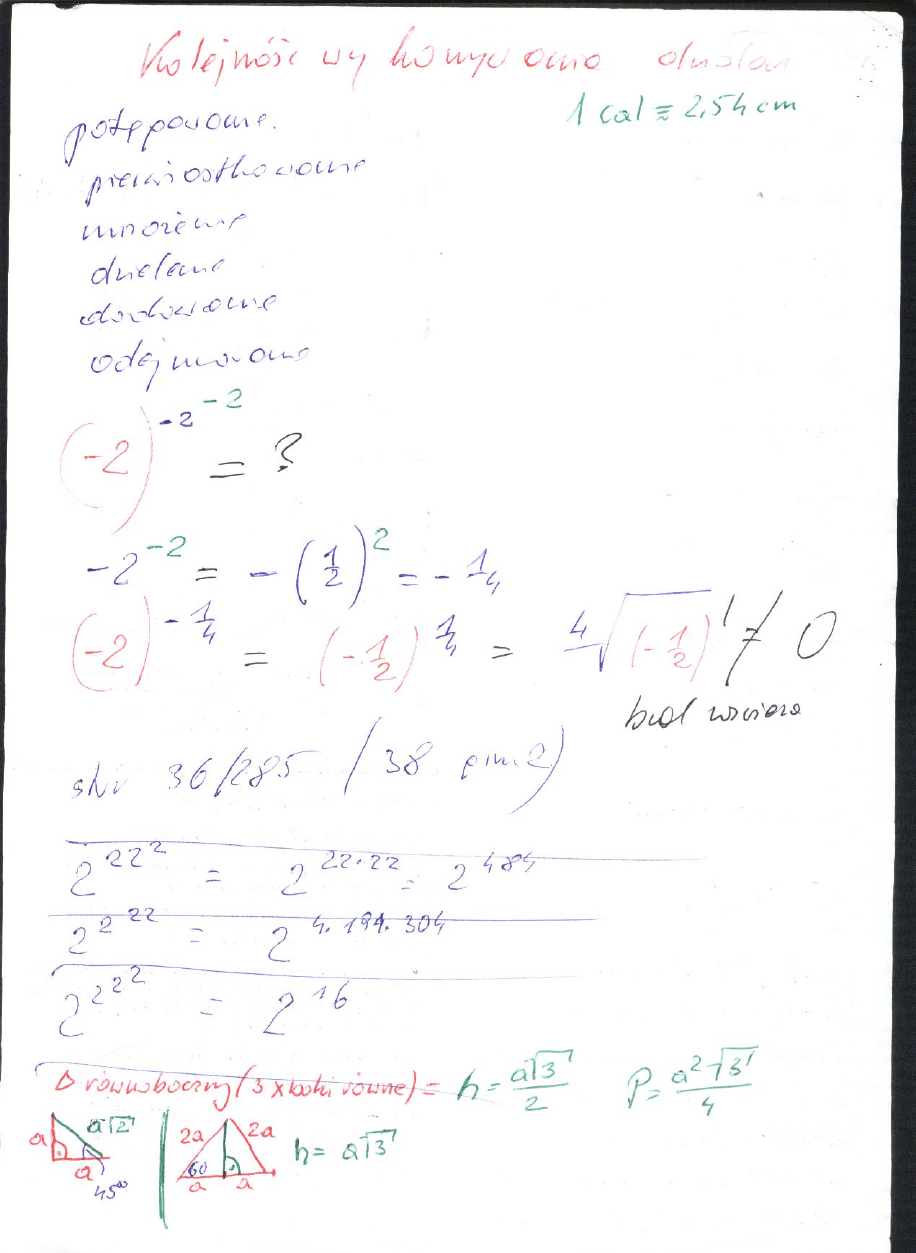 Kolejność wykonywania działań
1 cal ≈ 2,54 cm
potęgowanie.
pierwiastkowanie
mnożenie
dzielenie
dodawanie
odejmowanie
(-2)^-2^-2 = ?
-2^-2 = -(1/2)^2 = -1/4
(-2)^-1/4 = (-1/2)^1/4 = ⁴√(-1/2)¹ ≠ 0
str 36/285 (38 pkt 2)
2^22^2 = 2^22·22 = 2^484
2^2^22 = 2^4.194.304
2^2^2^2 = 2^16
Δ równoboczny (3 x boki równe) = h = a√3/2 P = a²√3/4
a a√2 a 45°
2a 2a 60 a a h = a√3